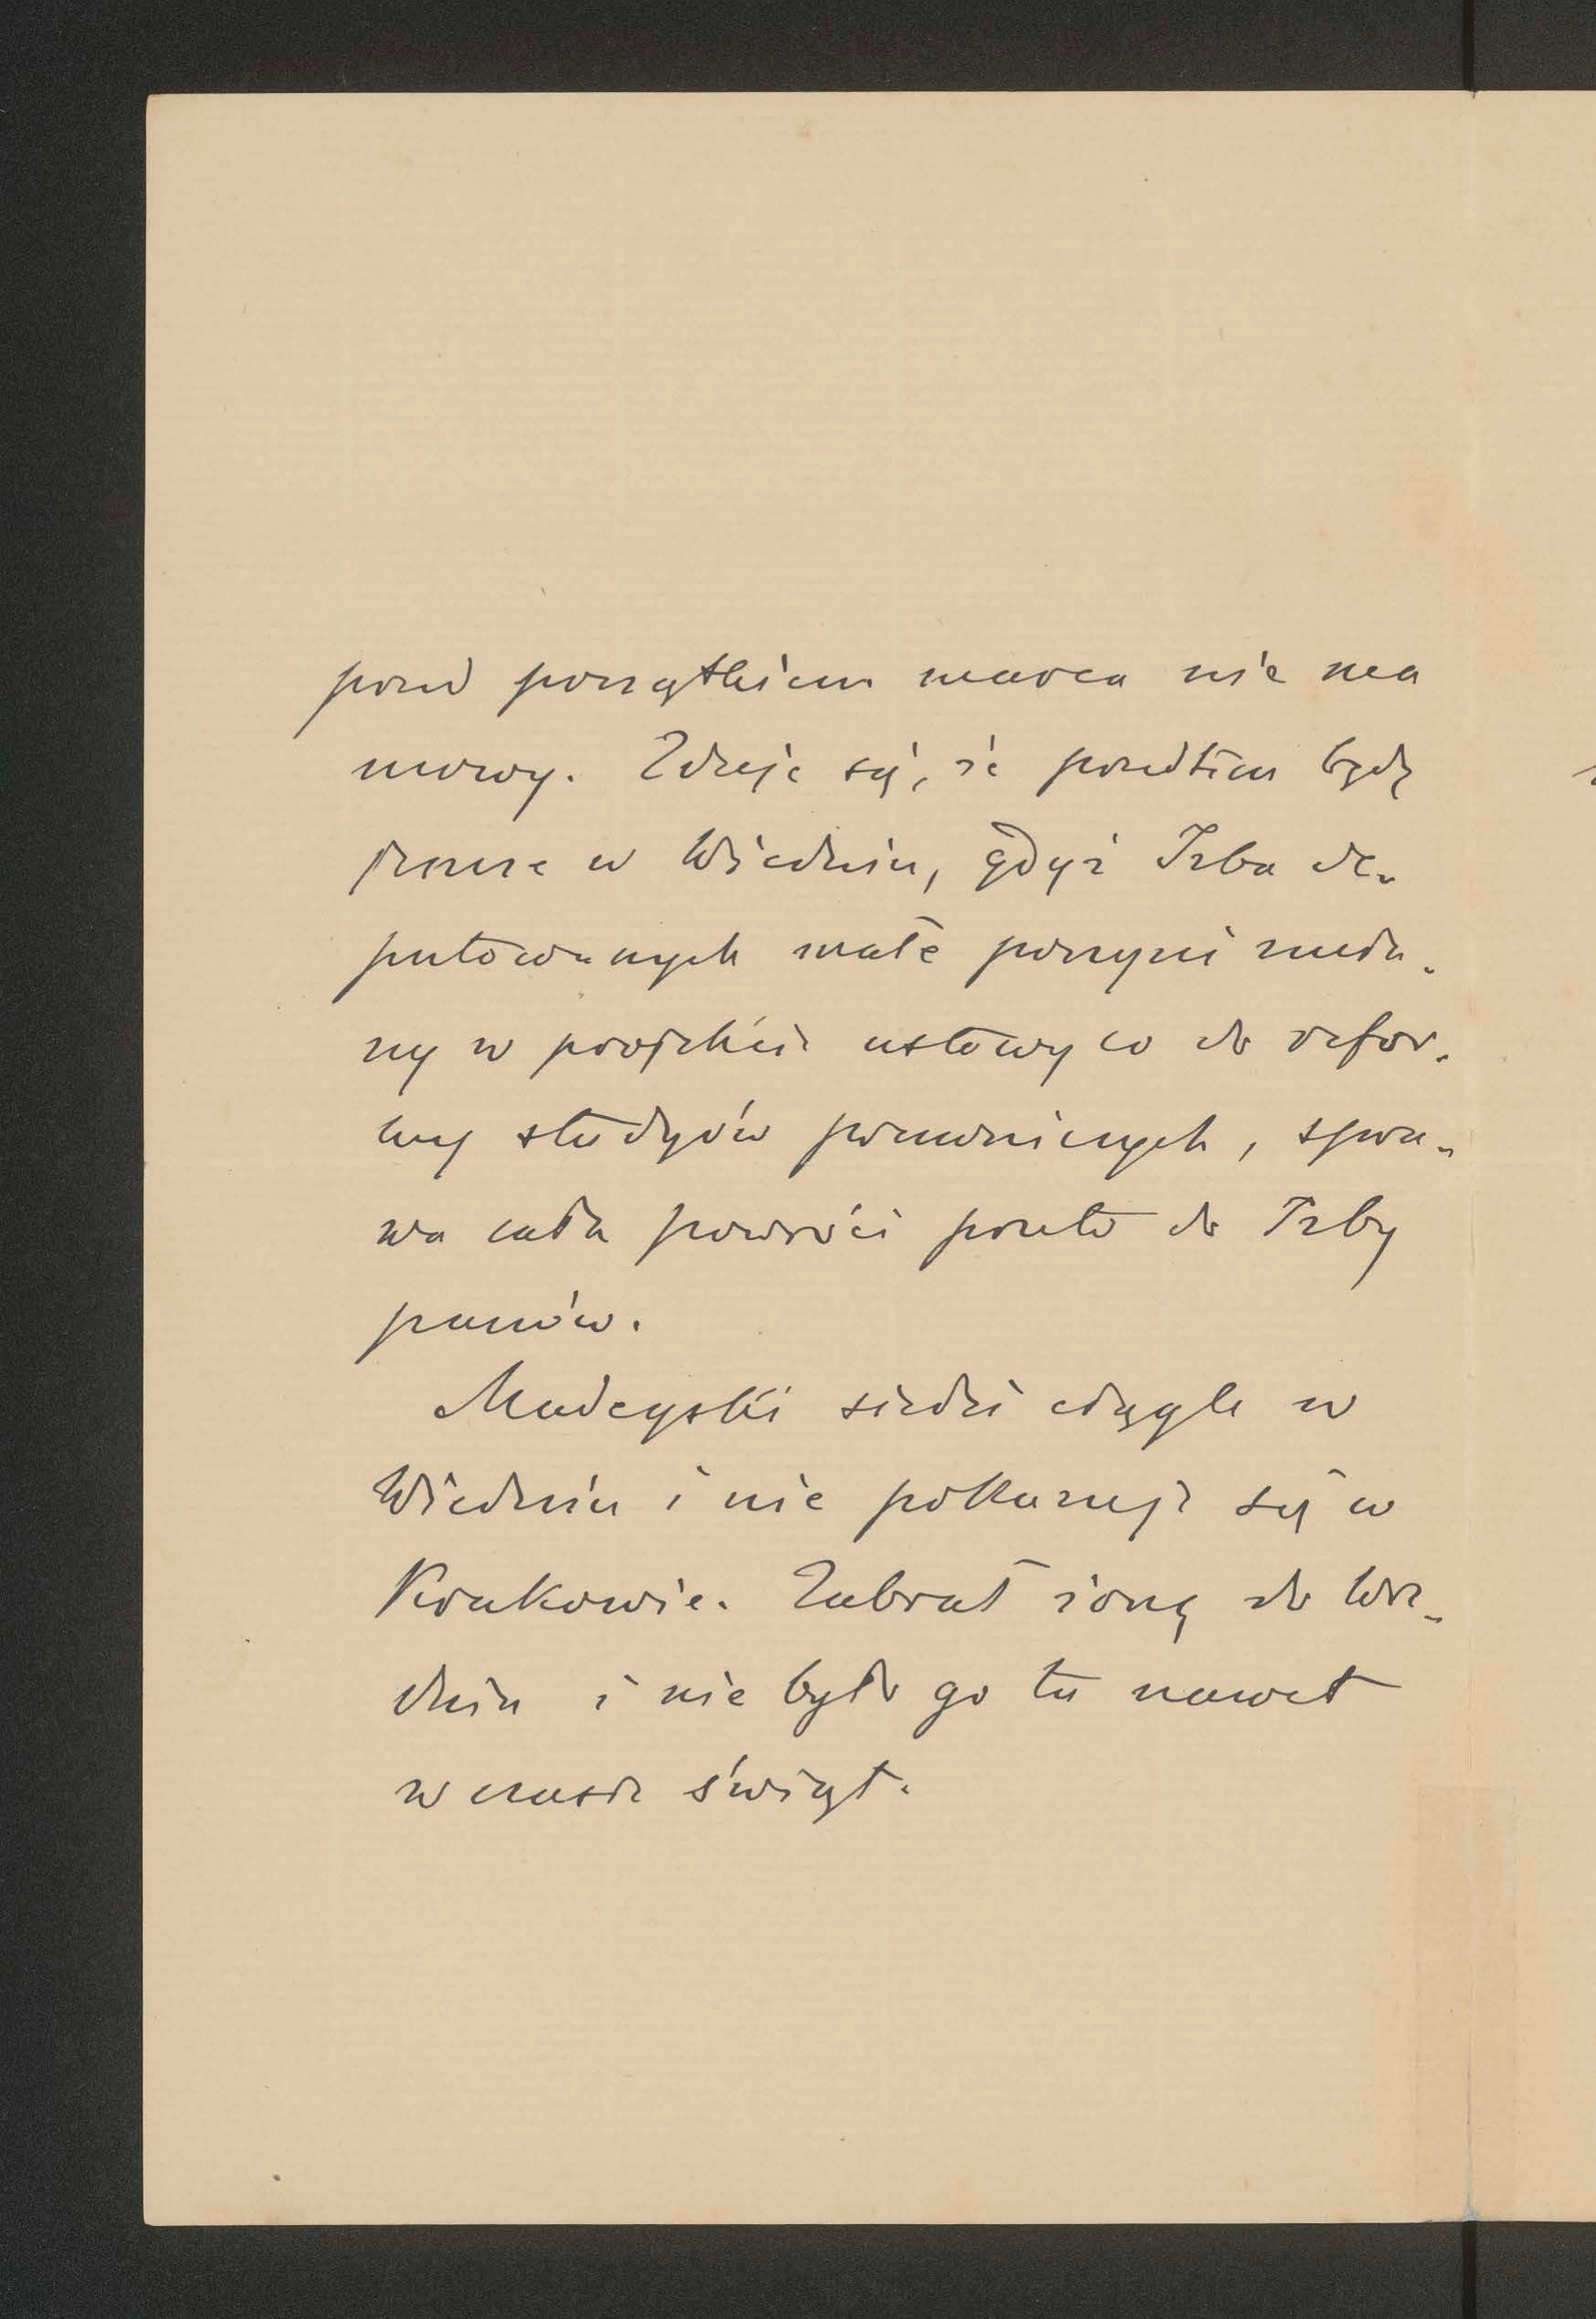 przed początkiem marca nie ma
mowy. Zdaje się, że przedtem będę
jeszcze w Wiedniu, gdyż Izba de-
putowanych małe poczyni zmia-
ny w projekcie ustawy co do refor-
my studyów prawniczych, spra-
wa cała powróci przeto do Izby
panów.
Madeyski siedzi ciągle w
Wiedniu i nie pokazuje się w
Krakowie. Zabrał żonę do Wie-
dnia i nie było go tu nawet
w czasie świąt.